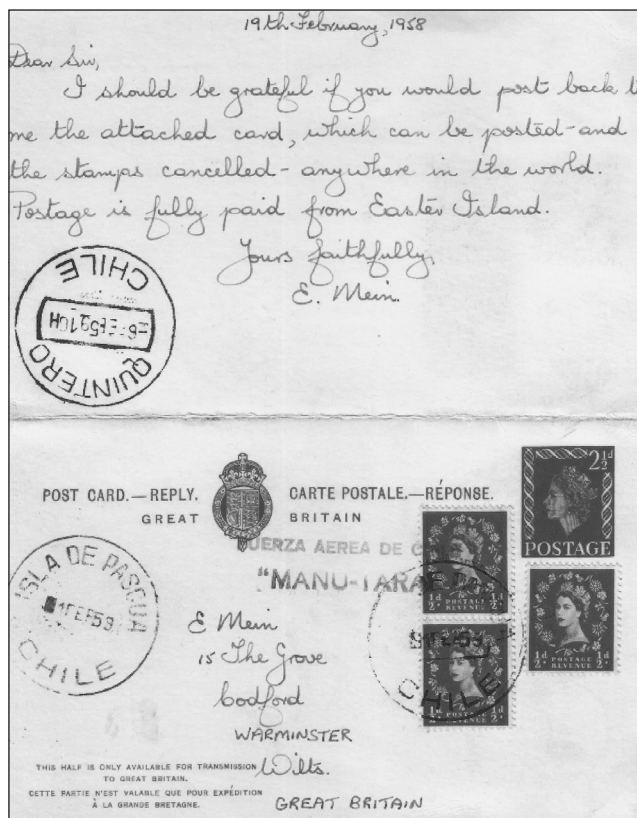 19th February, 1958
Dear Sir,
I should be grateful if you would post back t
me the attached card, which can be posted - and
the stamps cancelled - anywhere in the world.
Postage is fully paid from Easter Island.
Yours faithfully,
E. Mein.
QUINTERO
CHILE
POST CARD.—REPLY.
GREAT BRITAIN
CARTE POSTALE.—RÉPONSE.
2½d
POSTAGE
FUERZA AEREA DE
"MANU-TARA
ISLA DE PASCUA
FEB 59
CHILE
CHILE
½d POSTAGE REVENUE ½d
½d POSTAGE REVENUE ½d
½d POSTAGE REVENUE ½d
E Mein
15 The Grove
Codford
WARMINSTER
Wilts.
GREAT BRITAIN
THIS HALF IS ONLY AVAILABLE FOR TRANSMISSION
TO GREAT BRITAIN.
CETTE PARTIE N'EST VALABLE QUE POUR EXPÉDITION
À LA GRANDE BRETAGNE.